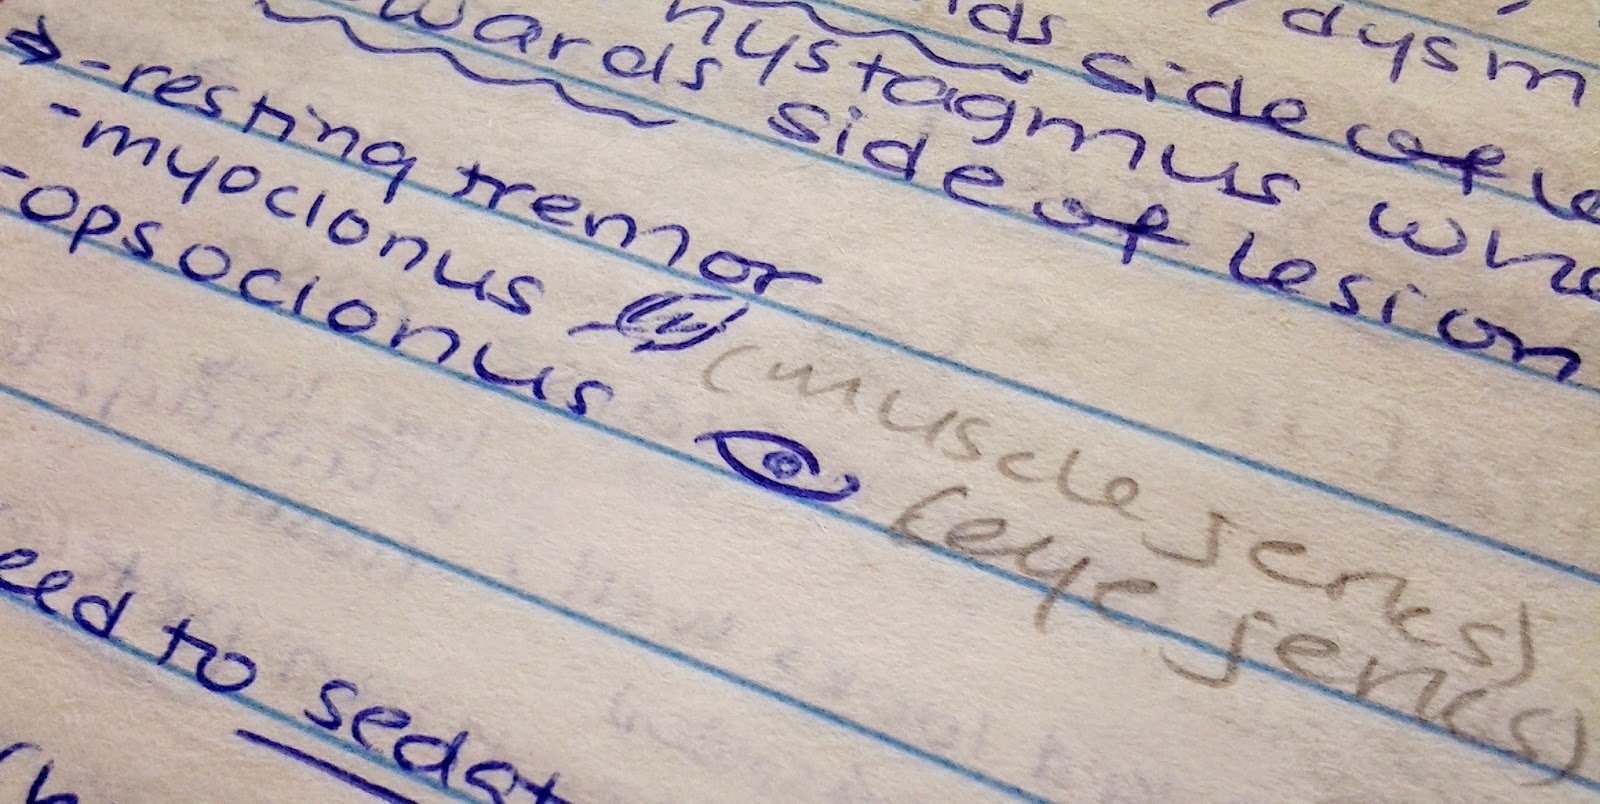 dysm
side of
nystagmus
wards side of lesion
-resting tremor
-myoclonus (muscle jerks)
-opsoclonus (eye jerks)
to sedat